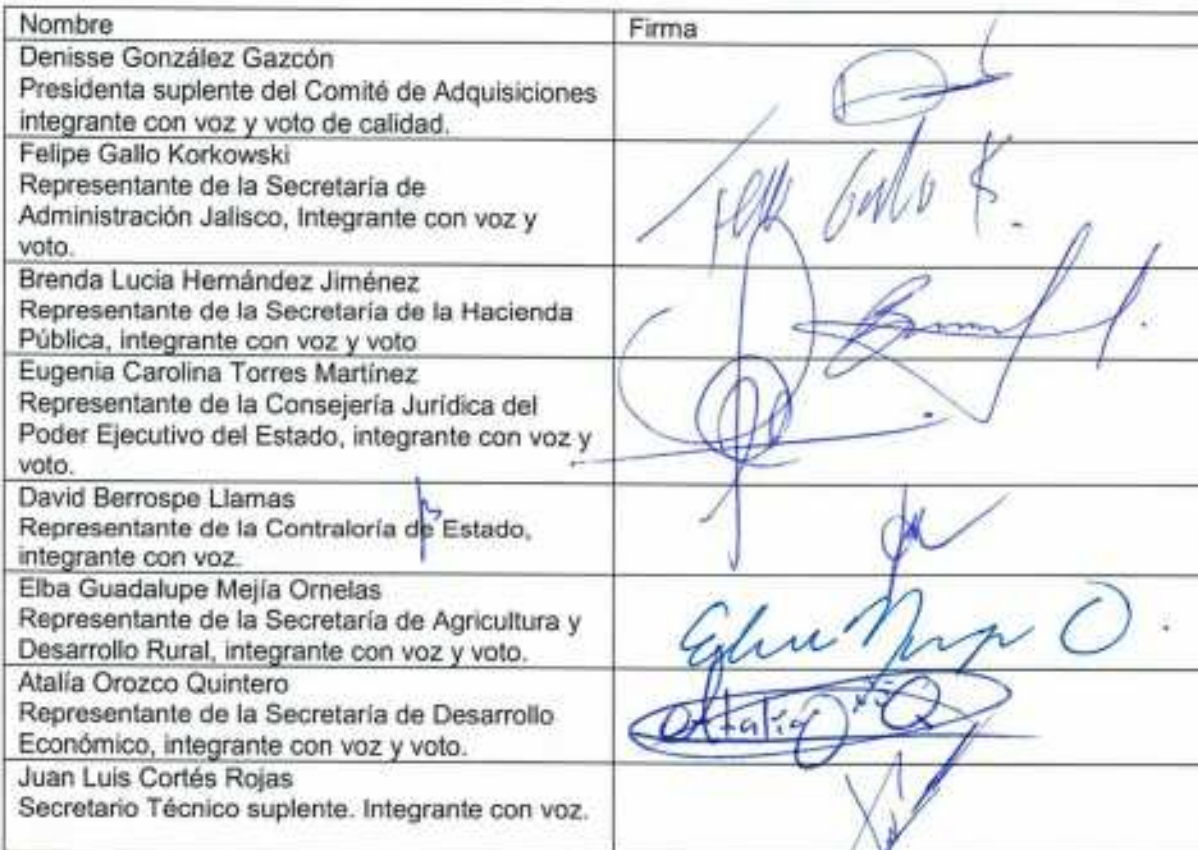 Nombre
Firma
Denisse González Gazcón
Presidenta suplente del Comité de Adquisiciones
integrante con voz y voto de calidad.
Felipe Gallo Korkowski
Representante de la Secretaría de
Administración Jalisco, Integrante con voz y
voto.
Gallo K.
Brenda Lucia Hernández Jiménez
Representante de la Secretaría de la Hacienda
Pública, integrante con voz y voto
Eugenia Carolina Torres Martínez
Representante de la Consejería Jurídica del
Poder Ejecutivo del Estado, integrante con voz y
voto.
David Berrospe Llamas
Representante de la Contraloría de Estado,
integrante con voz.
Elba Guadalupe Mejía Ornelas
Representante de la Secretaría de Agricultura y
Desarrollo Rural, integrante con voz y voto.
Atalía Orozco Quintero
Representante de la Secretaría de Desarrollo
Económico, integrante con voz y voto.
Atalia
Juan Luis Cortés Rojas
Secretario Técnico suplente. Integrante con voz.